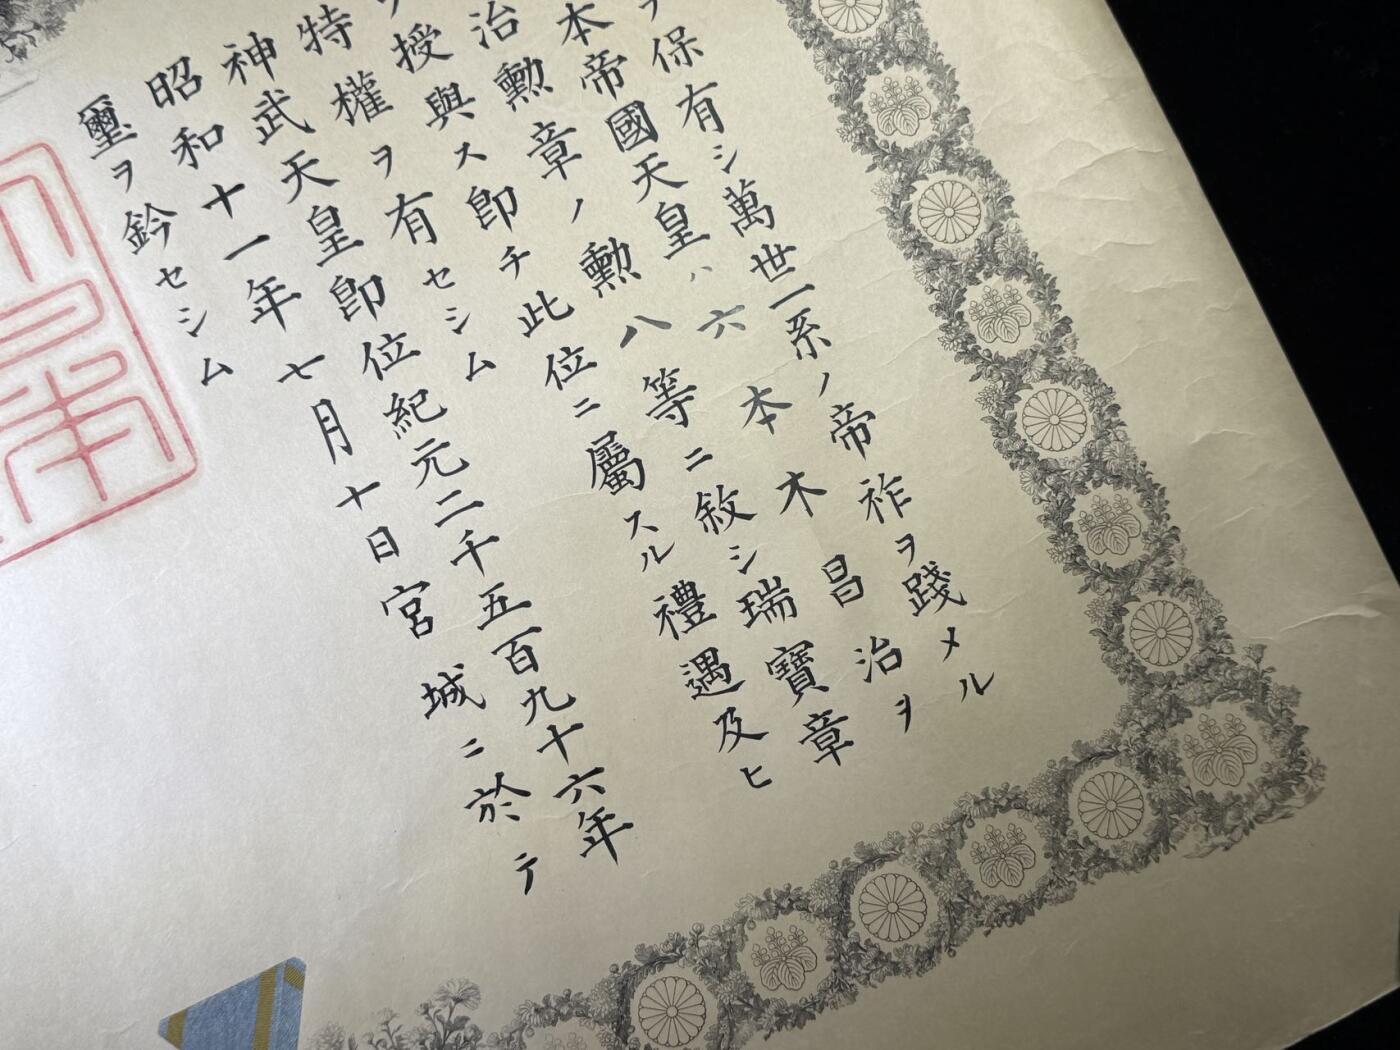 保有シ萬世一系ノ帝祚ヲ踐メル
本帝國天皇ハ六本木昌治ヲ
治勲章ノ勲八等ニ敘シ瑞寶章
授與ス卽チ此位ニ屬スル禮遇及ヒ
特權ヲ有セシム
神武天皇卽位紀元二千五百九十六年
昭和十一年七月十日宮城ニ於テ
璽ヲ鈐セシム